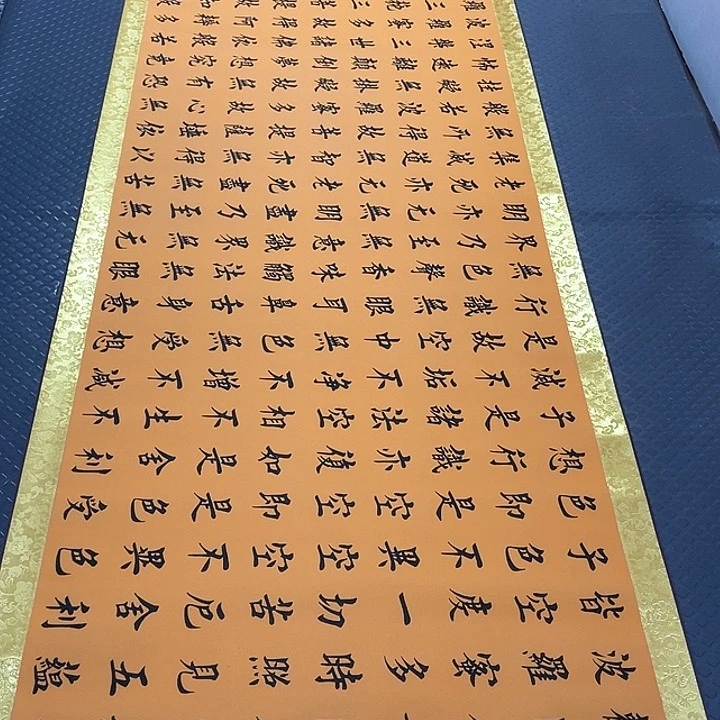 波羅蜜多時照見五蘊
皆空度一切苦厄舍利
子色不異空空不異色
色即是空空即是色受
想行識亦復如是舍利
子是諸法空相不生不
滅不垢不净不增不減
是故空中無色無受想
行識無眼耳鼻舌身意
無色聲香味觸法無眼
界乃至無意識界無无
明亦无無明盡乃至無
老死亦无老死盡無苦
集滅道無智亦無得以
無所得故菩提薩埵依
般若波羅蜜多故心無
挂礙無挂礙故無有恐
怖遠離顛倒夢想究竟
涅槃三世諸佛依般若
波羅蜜多故得阿耨多
羅三藐三